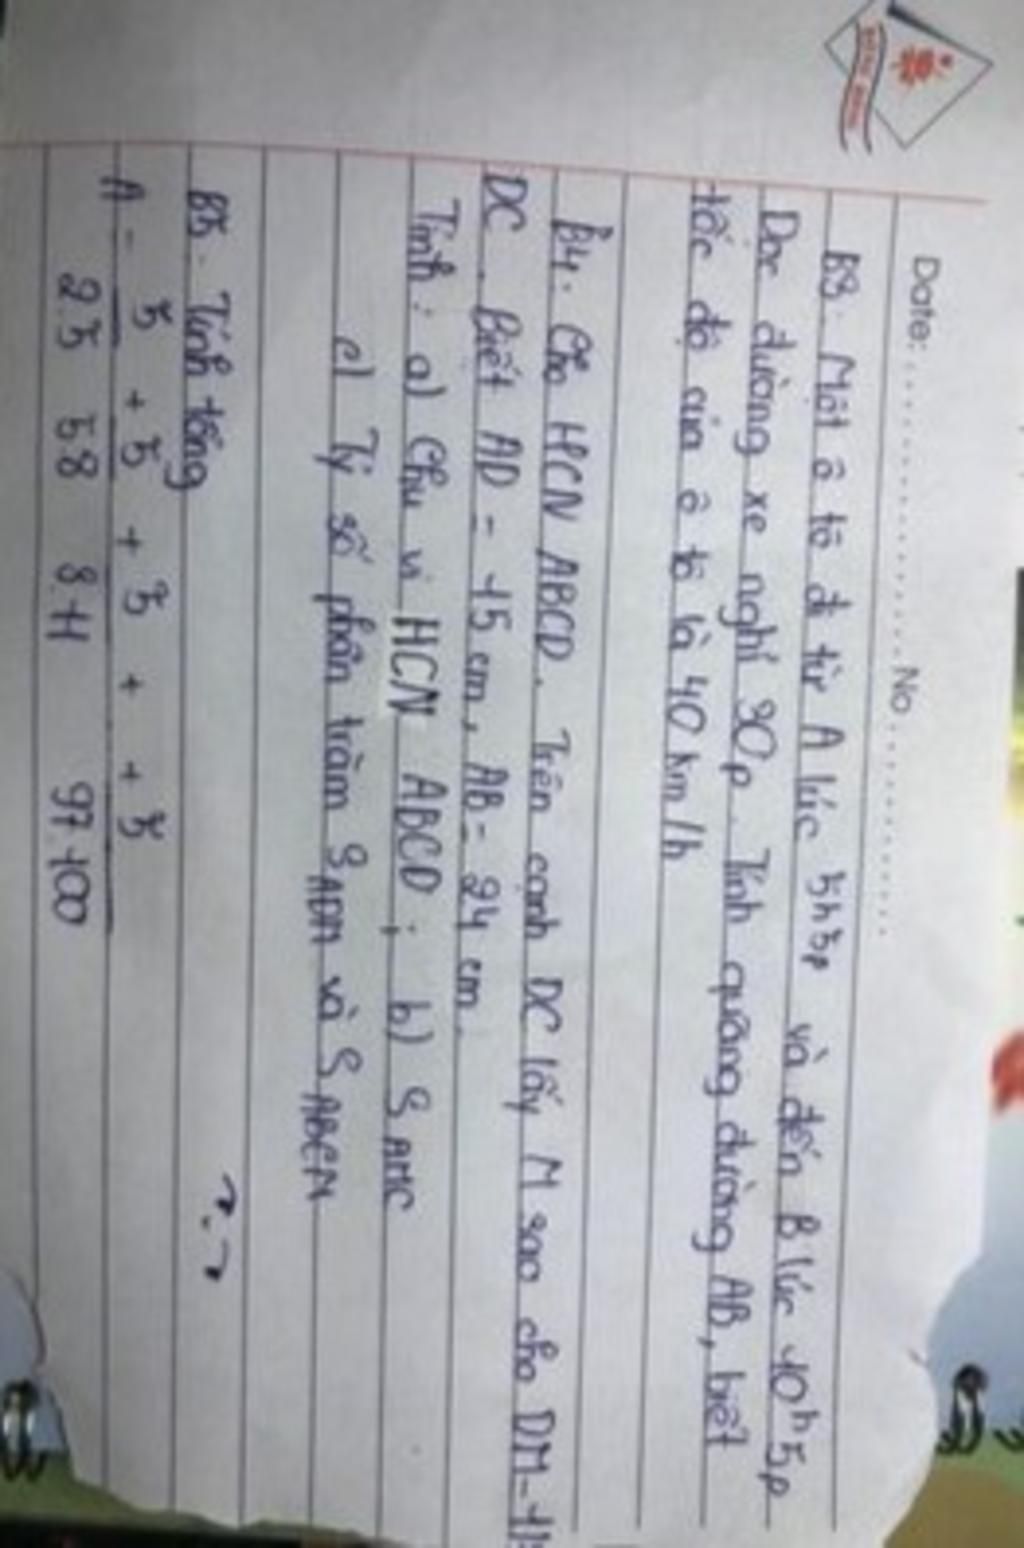 Date: No
B3. Một ô tô đi từ A lúc 5h5p và đến B lúc 10h5p
Dọc đường xe nghỉ 30p. Tính quãng đường AB, biết
tốc độ của ô tô là 40 km/h
B4. Cho HCN ABCD. Trên cạnh DC lấy M sao cho DM =
DC. Biết AD = 15 cm, AB = 24 cm.
Tính: a) Chu vi HCN ABCD; b) S AMC
c) Tỷ số phần trăm S ADM và S ABCM
B5. Tính tổng
A = 3 + 3 + 3 + + 3
2.5 5.8 8.11 97.100